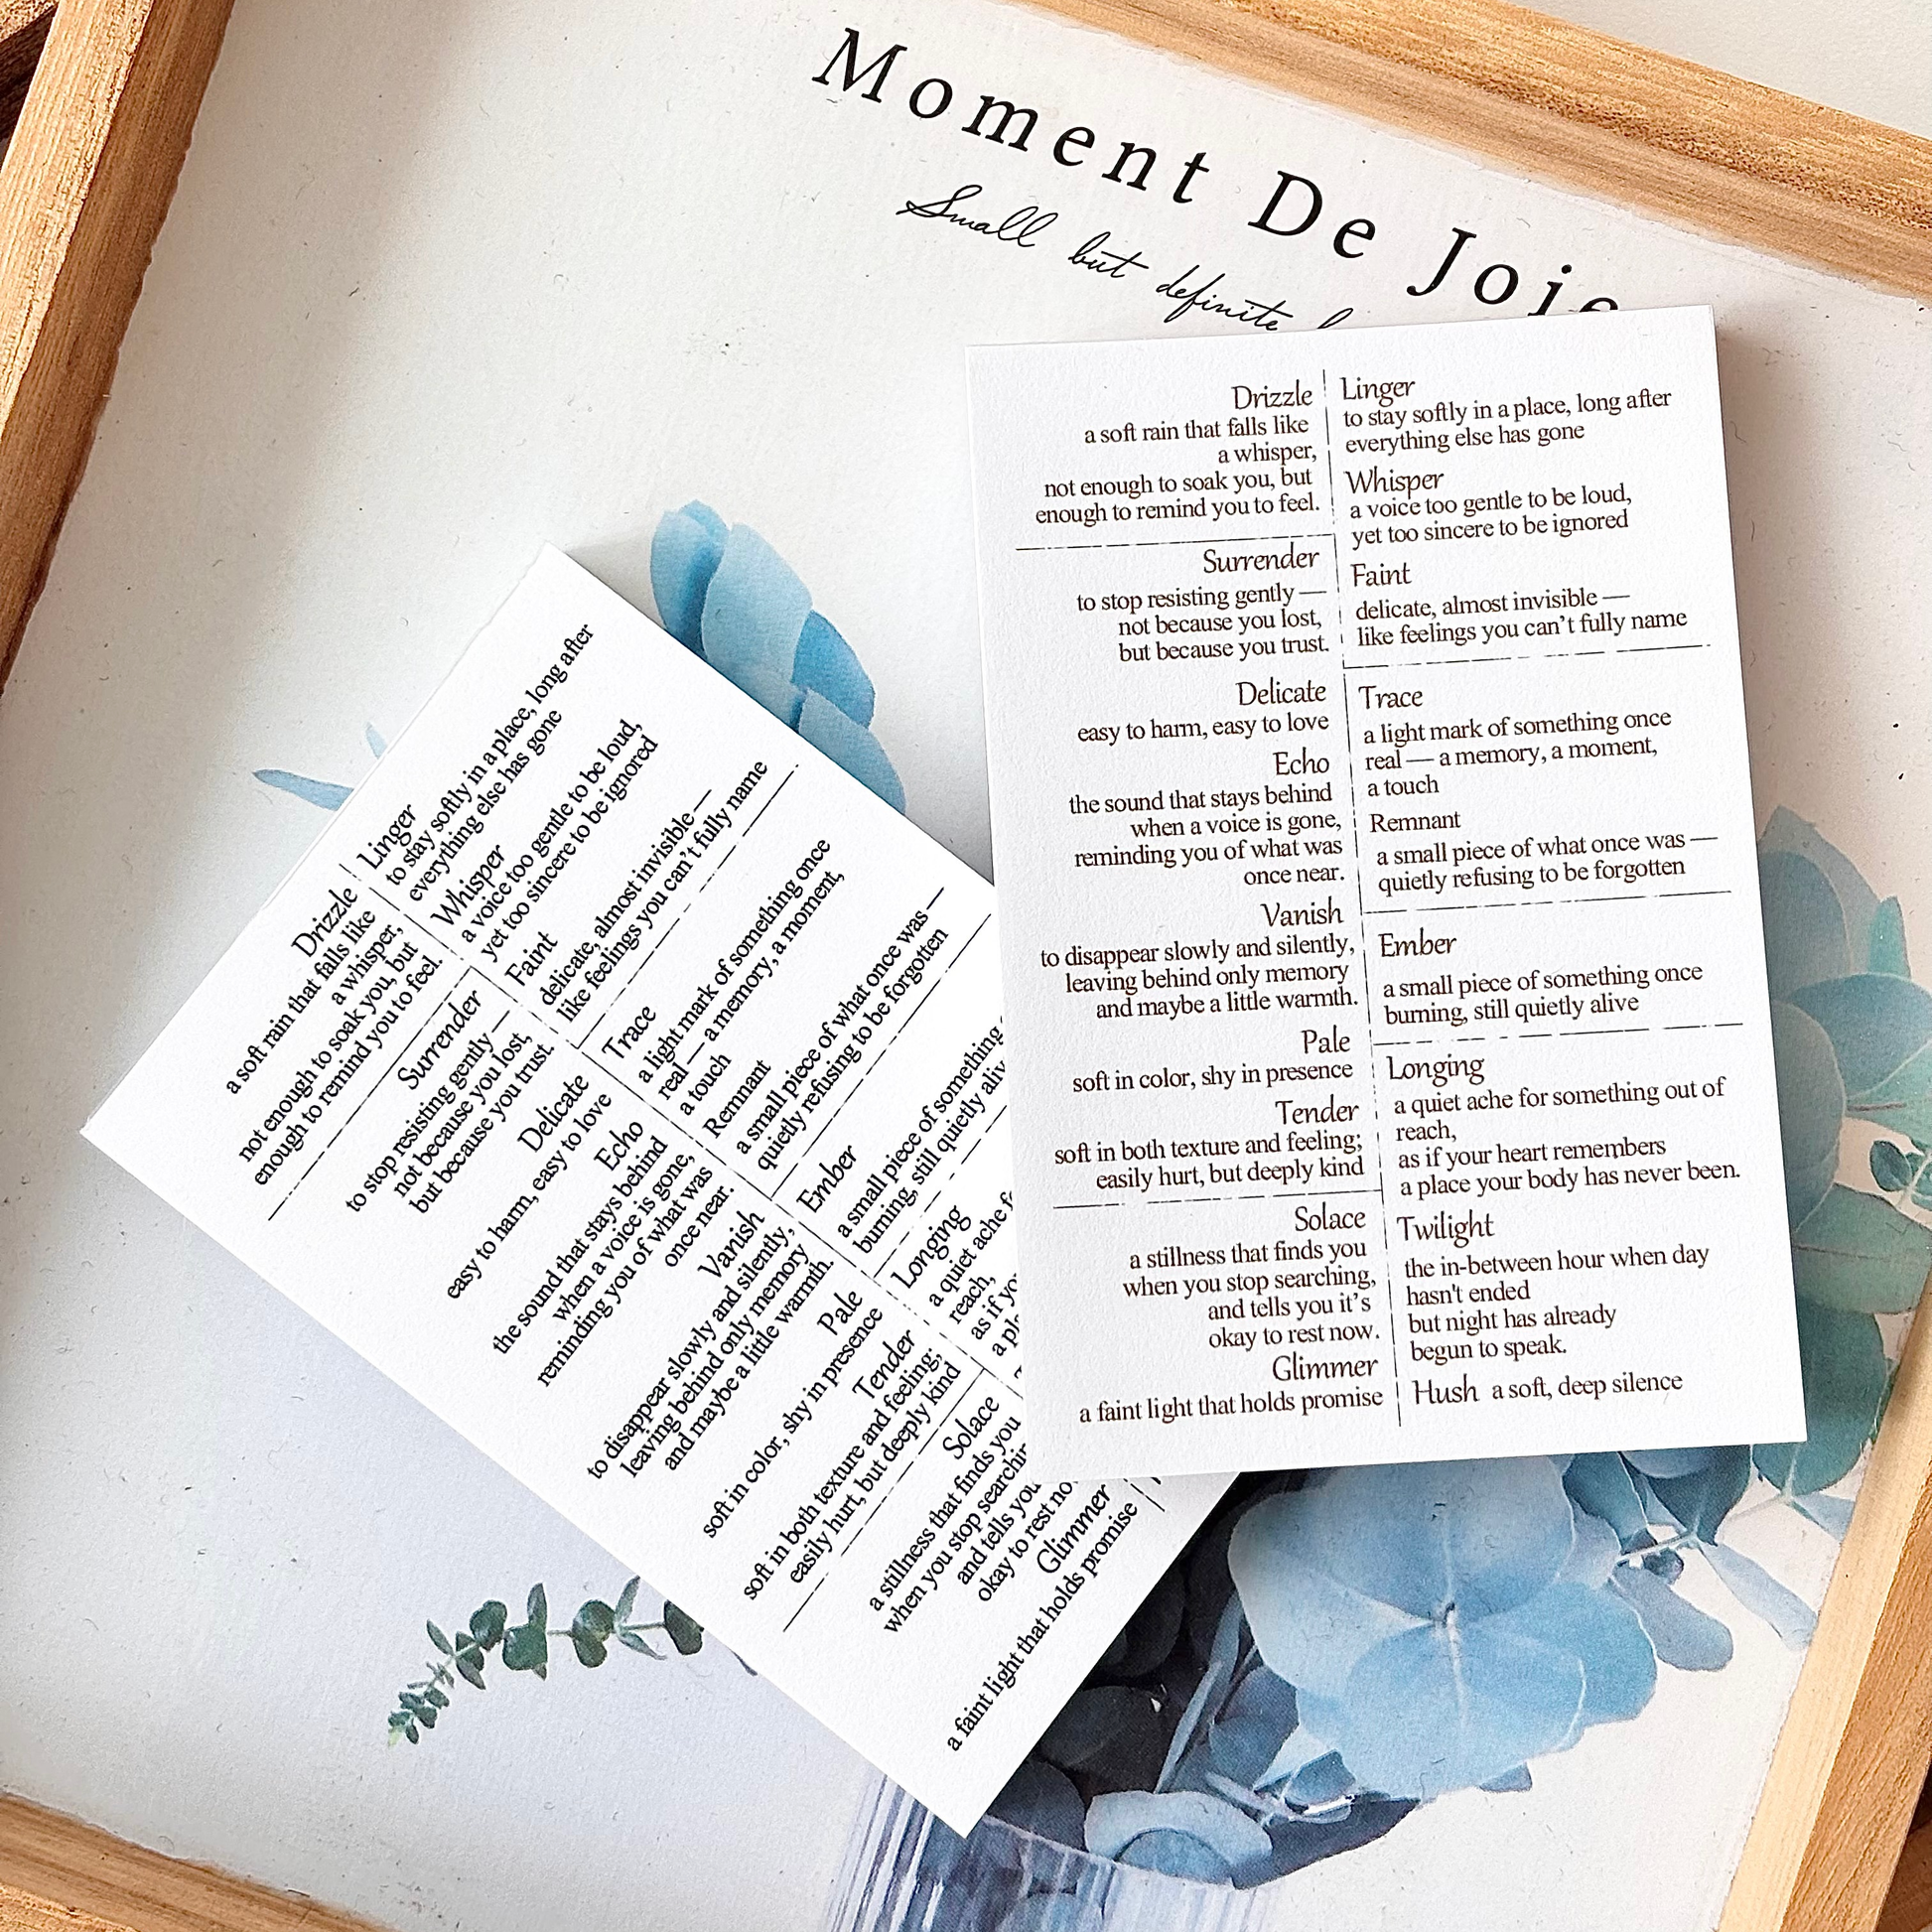 Moment De Joie
Small but definite
Drizzle
a soft rain that falls like
a whisper,
not enough to soak you, but
enough to remind you to feel.
Surrender
to stop resisting gently —
not because you lost,
but because you trust.
Delicate
easy to harm, easy to love
Echo
the sound that stays behind
when a voice is gone,
reminding you of what was
once near.
Vanish
to disappear slowly and silently,
leaving behind only memory
and maybe a little warmth.
Pale
soft in color, shy in presence
Tender
soft in both texture and feeling;
easily hurt, but deeply kind
Solace
a stillness that finds you
when you stop searching,
and tells you it’s
okay to rest now.
Glimmer
a faint light that holds promise
Linger
to stay softly in a place, long after
everything else has gone
Whisper
a voice too gentle to be loud,
yet too sincere to be ignored
Faint
delicate, almost invisible —
like feelings you can’t fully name
Trace
a light mark of something once
real — a memory, a moment,
a touch
Remnant
a small piece of what once was —
quietly refusing to be forgotten
Ember
a small piece of something once
burning, still quietly alive
Longing
a quiet ache for something out of
reach,
as if your heart remembers
a place your body has never been.
Twilight
the in-between hour when day
hasn't ended
but night has already
begun to speak.
Hush a soft, deep silence
Drizzle
a soft rain that falls like
a whisper,
not enough to soak you, but
enough to remind you to feel.
Surrender
to stop resisting gently —
not because you lost,
but because you trust.
Delicate
easy to harm, easy to love
Echo
the sound that stays behind
when a voice is gone,
reminding you of what was
once near.
Vanish
to disappear slowly and silently,
leaving behind only memory
and maybe a little warmth.
Pale
soft in color, shy in presence
Tender
soft in both texture and feeling;
easily hurt, but deeply kind
Solace
a stillness that finds you
when you stop
and tells you
okay to rest
Glimmer
a faint light that holds promise
Linger
to stay softly in a place, long after
everything else has gone
Whisper
a voice too gentle to be loud,
yet too sincere to be ignored
Faint
delicate, almost invisible —
like feelings you can’t fully name
Trace
a light mark of something once
real — a memory, a moment,
a touch
Remnant
a small piece of what once was —
quietly refusing to be forgotten
Ember
a small piece of something
burning, still quietly
Longing
a quiet ache
reach,
as if
a